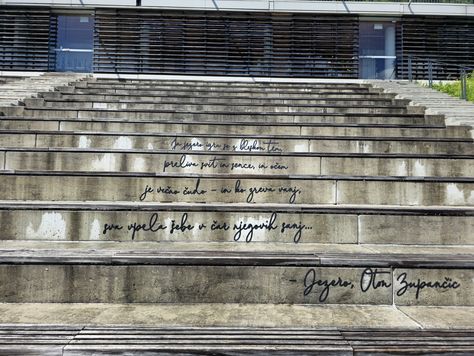 In jezero igra se z bleskom tem,
preliva svit in sence, in očem
je večno čudo – in ko zreva vanj,
sva vpela sebe v čar njegovih sanj...
- Jezero, Oton Zupančič